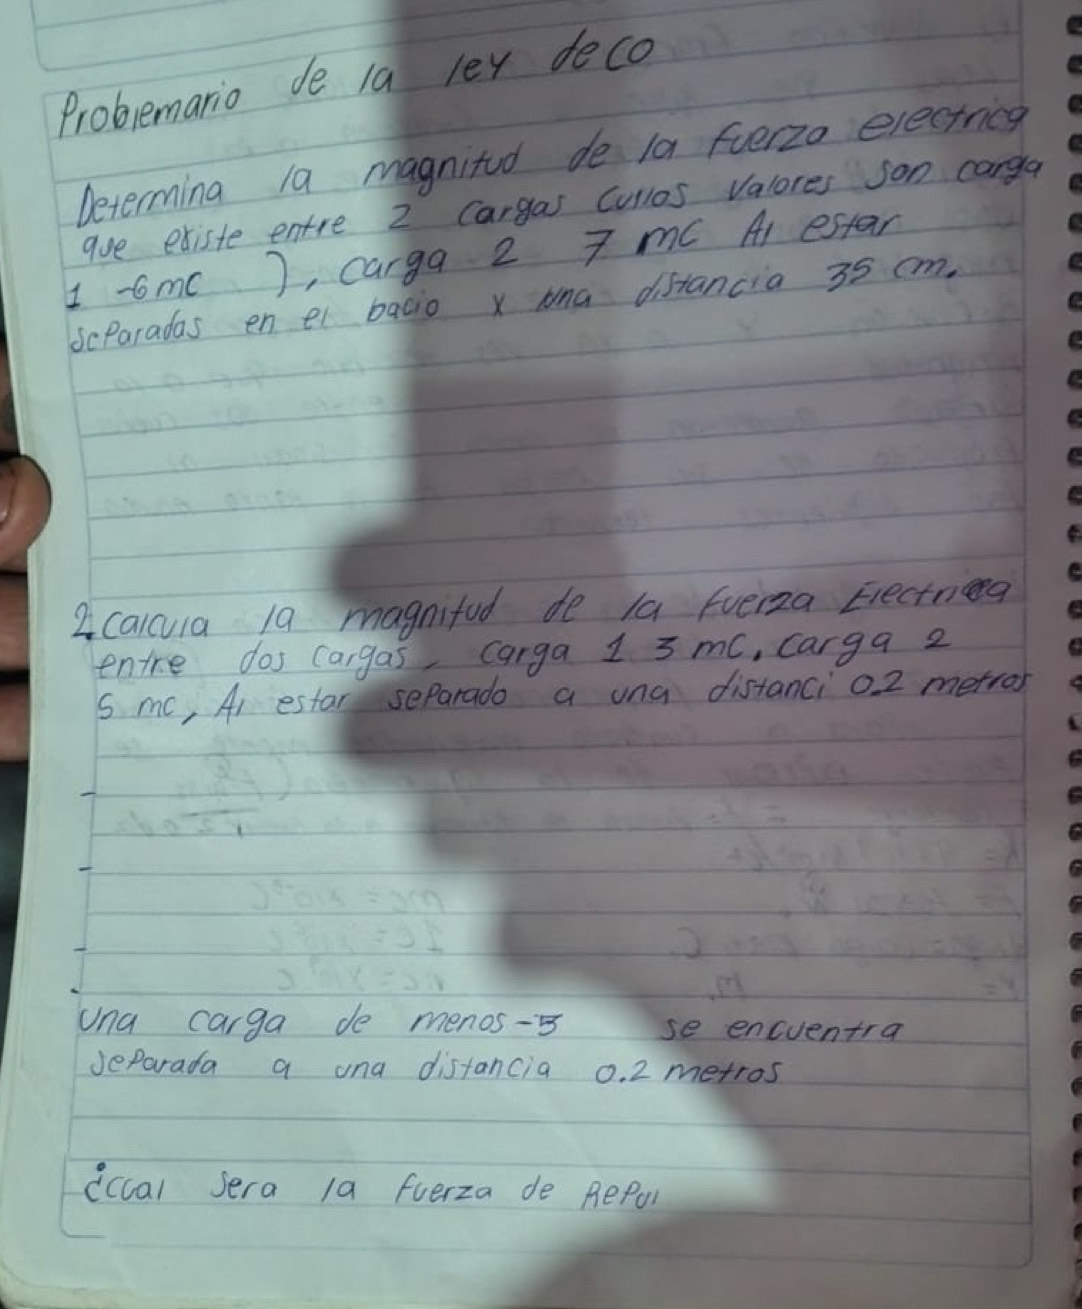 Problemario de la ley de co
Determina la magnitud de la fuerza electrica
que existe entre 2 cargas cullos valores son carga
1 -6 mc ), carga 2 7 mc Al estar
separadas en el bacio x una distancia 35 cm.
2. calcula la magnitud de la fuerza Electrica
entre dos cargas, carga 1 3 mc, carga 2
5 mc, Al estar separado a una distanci 0.2 metros
una carga de menos -5 se encuentra
separada a una distancia 0.2 metros
¿cual sera la fuerza de Repul